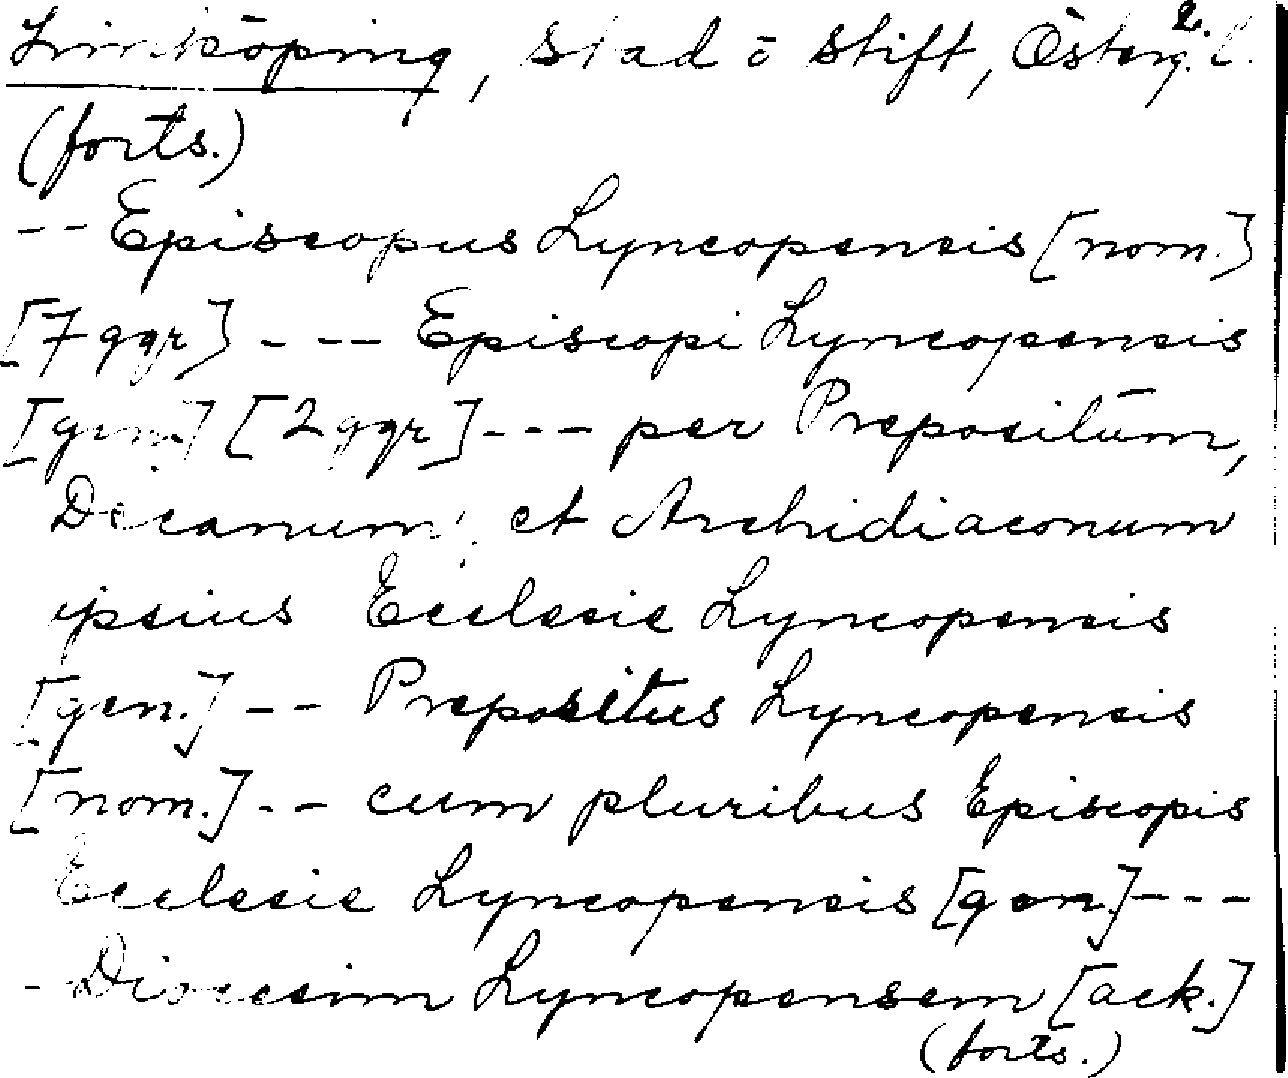 Linköping, stad o stift, Österg. l. 2.
(forts.)
-- Episcopus Lyncopensis [nom.]
[7 ggr] --- Episcopi Lyncopensis
[gen.] [2 ggr] --- per Prepositum,
Decanum, et Archidiaconum
ipsius Ecclesie Lyncopensis
[gen.] -- Prepositus Lyncopensis
[nom.] -- cum pluribus Episcopis
Ecclesie Lyncopensis [gen.] ---
- Diocesim Lyncopensem [ack.]
(forts.)